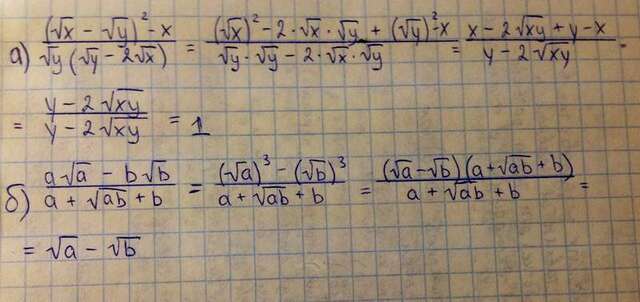 а) ((√x − √y)² − x) / (√y (√y − 2√x)) = ((√x)² − 2·√x·√y + (√y)² − x) / (√y·√y − 2·√x·√y) = (x − 2√xy + y − x) / (y − 2√xy) =
= (y − 2√xy) / (y − 2√xy) = 1
б) (a√a − b√b) / (a + √ab + b) = ((√a)³ − (√b)³) / (a + √ab + b) = ((√a − √b)(a + √ab + b)) / (a + √ab + b) =
= √a − √b